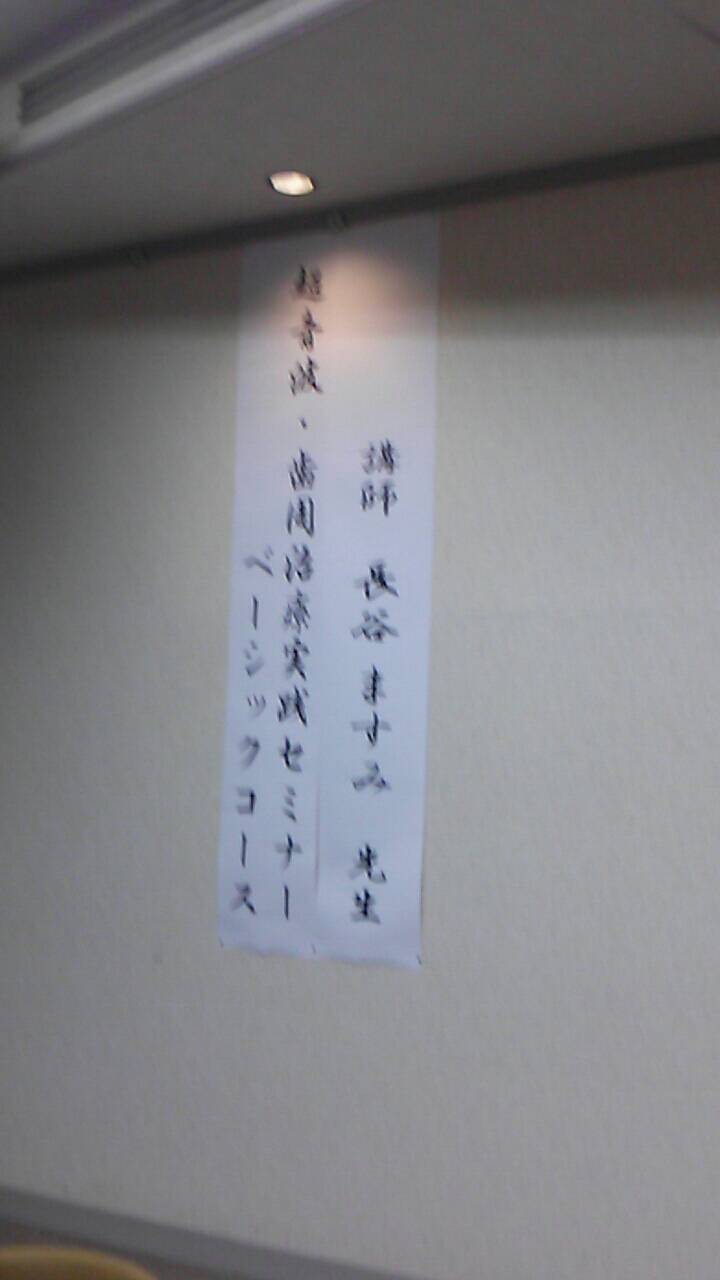 講師 長谷ますみ 先生
超音波・歯周治療実践セミナー
ベーシックコース